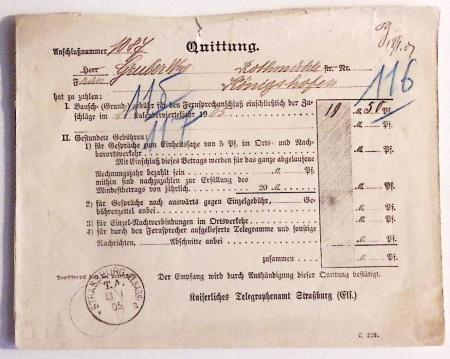 Anschlußnummer 1087 Quittung.
Herr Gruber Rothmühle str. Nr.
Frau Königshofen
115 116
117
hat zu zahlen:
I. Bausch-(Grund-)gebühr für den Fernsprechanschluß einschließlich der Zu-
schläge im Kalendervierteljahr 190 19 M 50 Pf.
II. Gestundete Gebühren:
1) für Gespräche zum Einheitssatze von 5 Pf. im Orts- und Nach-
barortsverkehr M Pf.
Mit Einschluß dieses Betrags werden für das ganze abgelaufene
Rechnungsjahr bezahlt sein M Pf.
mithin sind nachzuzahlen zur Erfüllung des
Mindestbetrags von jährlich 20 M M Pf.
2) für Gespräche nach auswärts gegen Einzelgebühr, Ge-
bührenzettel anbei M Pf.
3) für Einzel-Nachtverbindungen im Ortsverkehr M Pf.
4) durch den Fernsprecher aufgelieferte Telegramme und sonstige
Nachrichten, Abschnitte anbei M Pf.
zusammen M Pf.
Der Empfang wird durch Aushändigung dieser Quittung bestätigt.
STRASSBURG (ELSASS)
T.A.
13 1
05
Kaiserliches Telegraphenamt Straßburg (Els.)
C. 229.